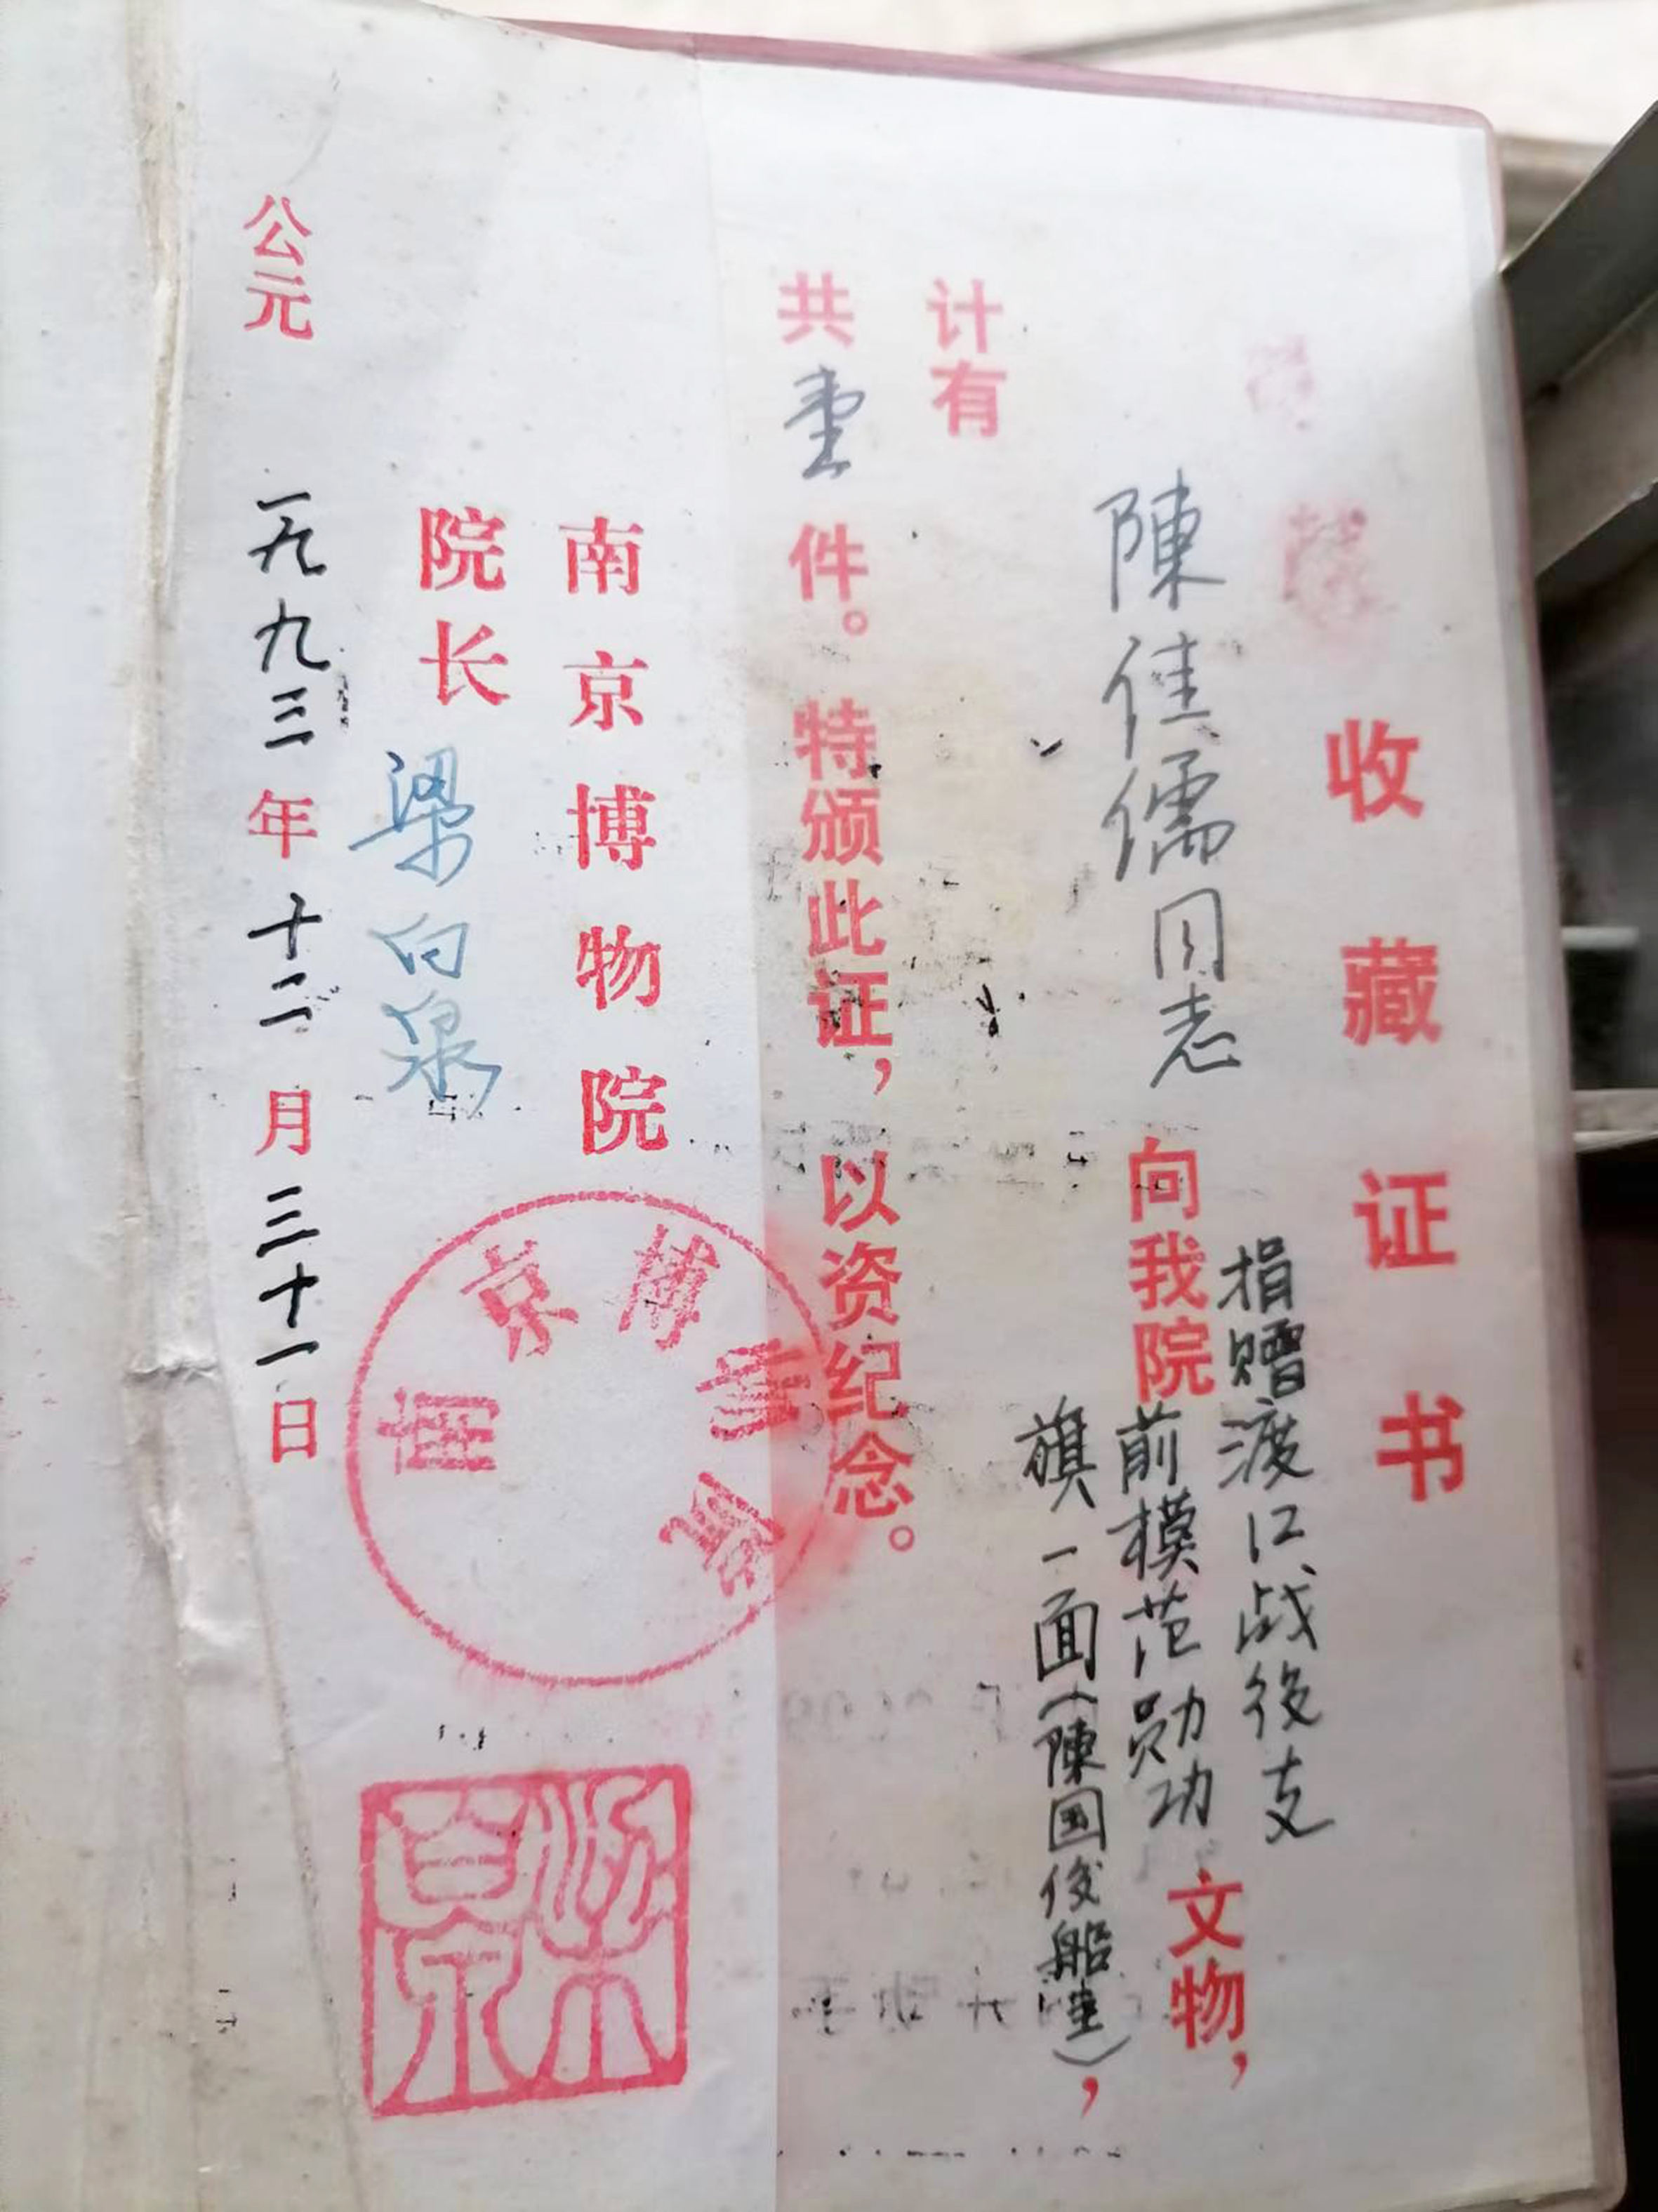 收藏证书
捐赠渡江战役支
陳佳儒同志向我院前模范勋功文物，
旗一面(陳国俊船)，
计有
共壹件。特颁此证，以资纪念。
南京博物院
院长 梁白泉
公元一九九三年十二月三十一日
南京博物院
梁白泉